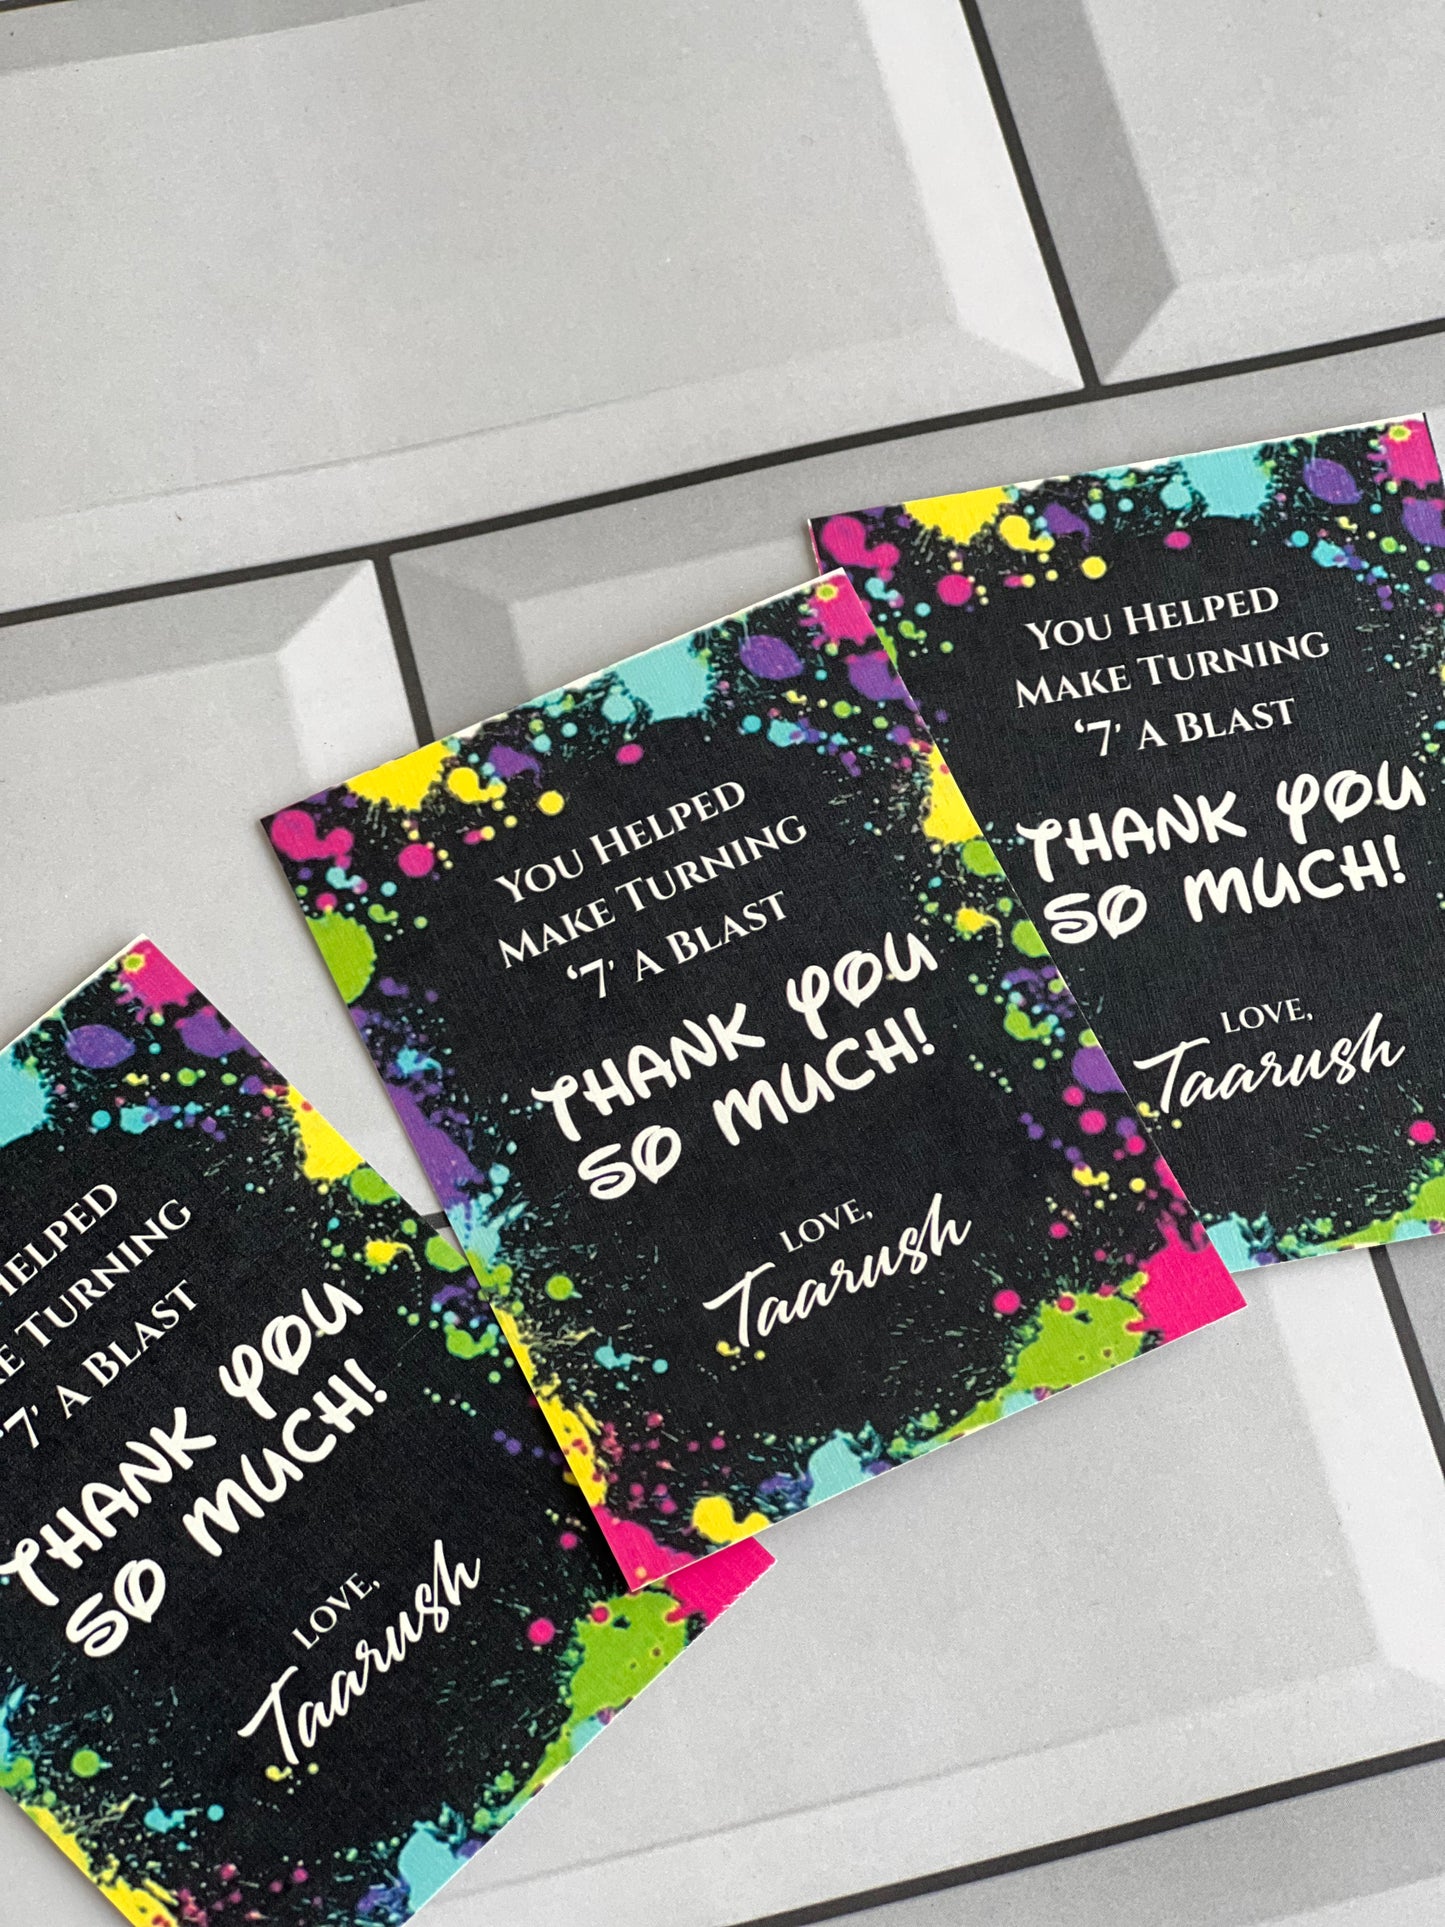 You Helped
Make Turning
‘7’ a Blast
Thank you
so much!
Love,
Taarush
You Helped
Make Turning
‘7’ a Blast
Thank you
so much!
Love,
Taarush
Helped
Turning
‘7’ a Blast
Thank you
so much!
Love,
Taarush